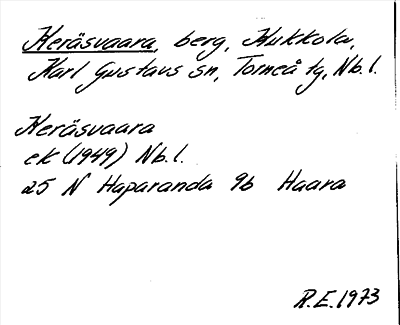 Keräsvaara, berg, Kukkola,
Karl Gustavs sn, Torneå tg, Nb.l.
Keräsvaara
ek (1949) Nb.l.
25 N Haparanda 9b Haara
R.E. 1973